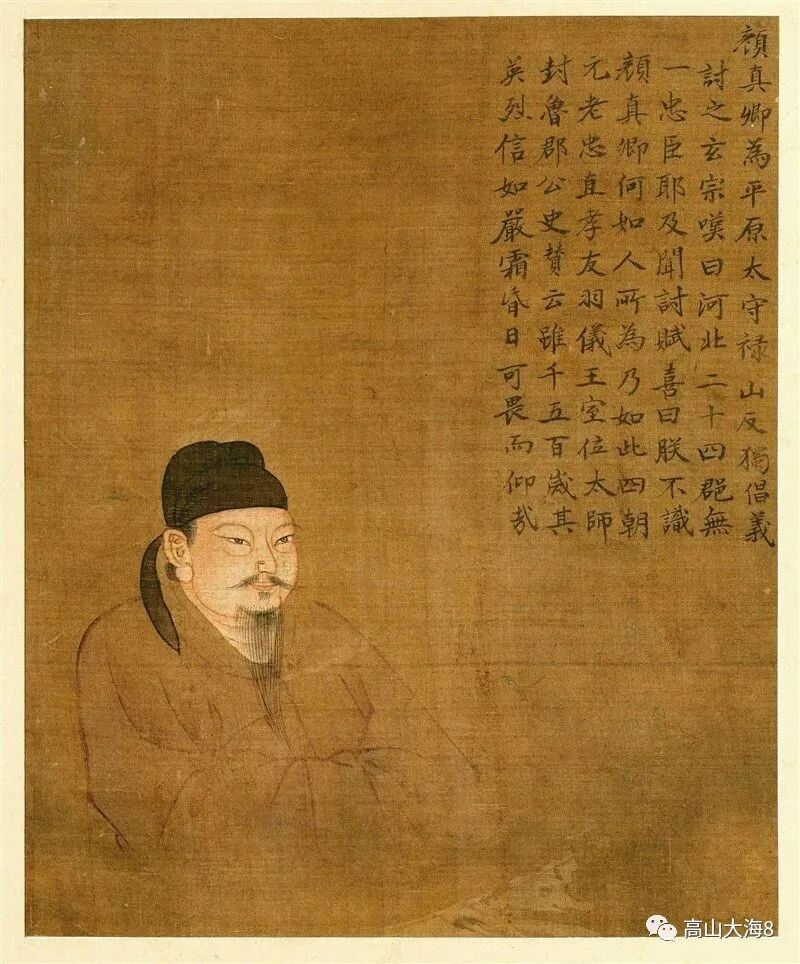 顔真卿為平原太守禄山反獨倡義
討之玄宗嘆曰河北二十四郡無
一忠臣耶及聞討賊喜曰朕不識
顔真卿何如人所為乃如此四朝
元老忠直孝友羽儀王室位太師
封魯郡公史賛云雖千五百歲其
英烈信如嚴霜日可畏而仰哉
高山大海8